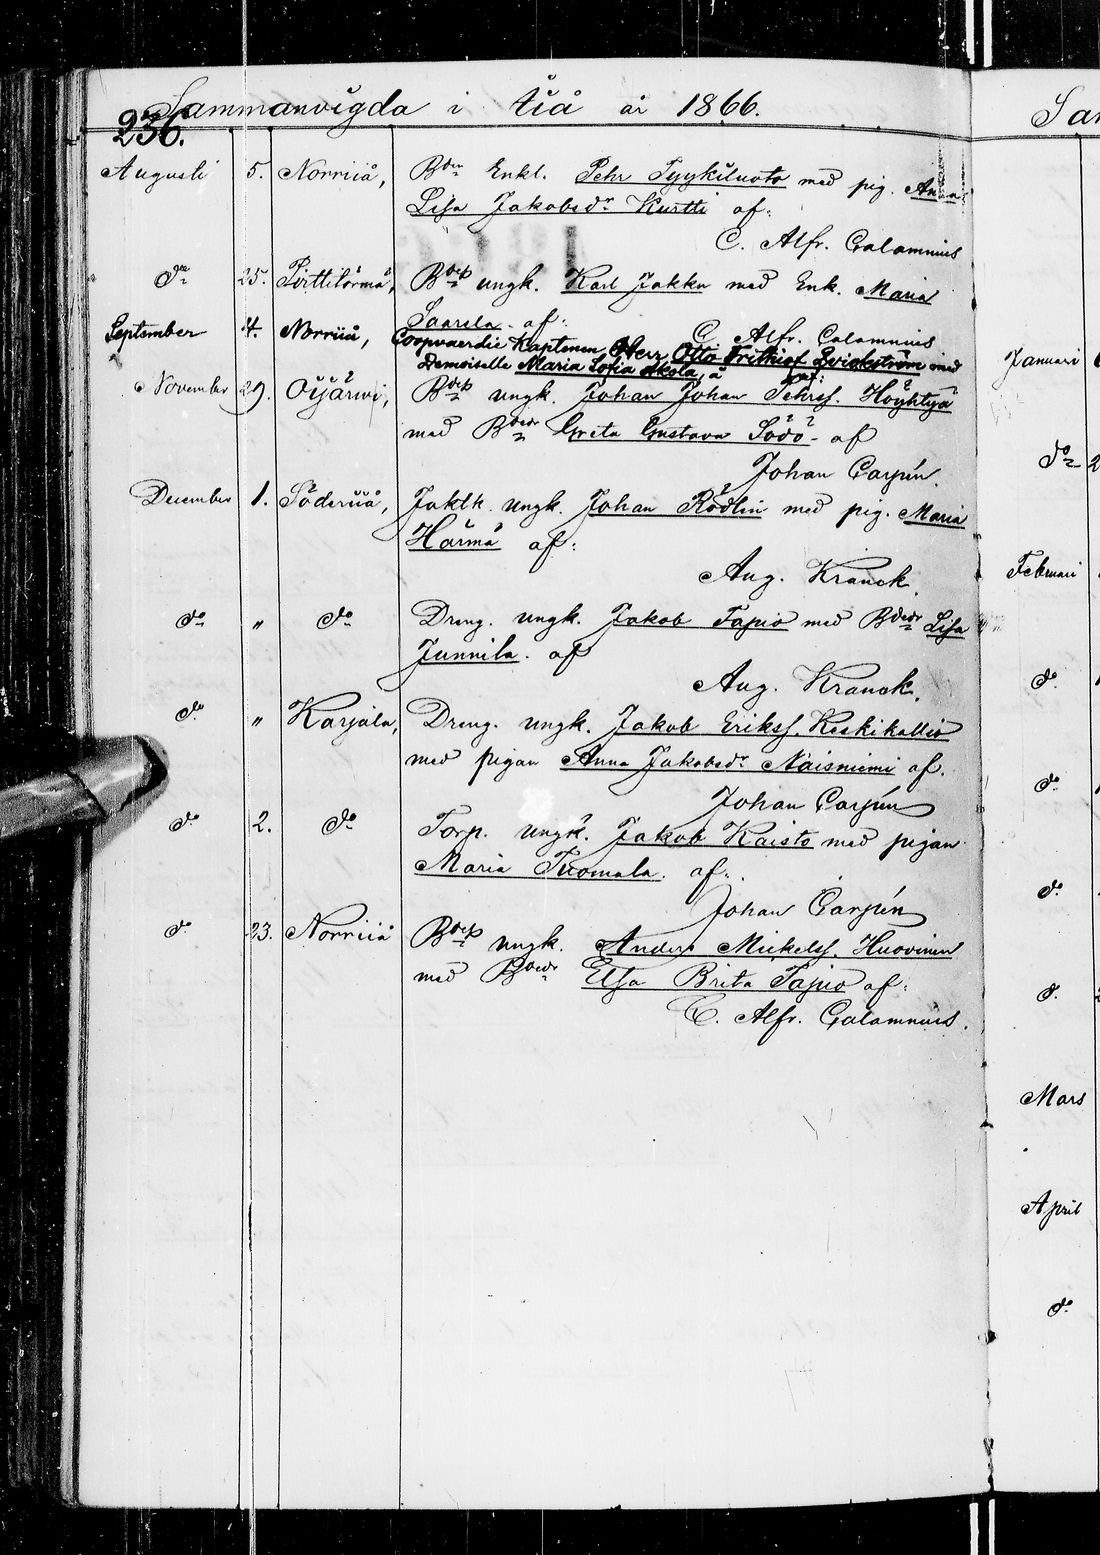 236.
Sammanvigda i Iiå år 1866.
Augusti 5. Norriiå, Bden Enkl. Pehr Tyykiluoto med pig. Anna
Lisa Jakobsdr Kurtti af:
C. Alfr. Calamnius
do 25. Pirttitörmä, Bdes ungk. Karl Jakku med Enk. Maria
Saarela. af:
C. Alfr. Calamnius
September 4. Norriiå, Coopvaerdie Kaptenen Herr Otto Frithiof Qvickström med
Demoiselle Maria Sofia Akola, å af:
November 29. Oijärwi, Bdes ungk. Johan Johan Pehrss. Höyhtyä
med Bdedr Greta Gustava Södö. af
Johan Carpén.
December 1. Söderiiå, Jaktk. ungk. Johan Rödlin med pig. Maria
Härmä af:
Aug. Kranck.
do " do Dreng. ungk. Jakob Tapio med Bdedr Lisa
Junnila. af
Aug. Kranck.
do " Karjala, Dreng. ungk. Jakob Erikss. Keskikallio
med pigan Anna Jakobsdr Näisniemi af.
Johan Carpén
do 2. do Torp. ungk. Jakob Kaisto med pigan
Maria Tuomala. af:
Johan Carpén
do 23. Norriiå Bdes ungk. Anders Mickelss. Huovinen
med Bdedr Elsa Brita Tapio af:
C. Alfr. Calamnius.
San
Januari 6
do 2
Februari
do
do
do
d. 2
Mars
April
do